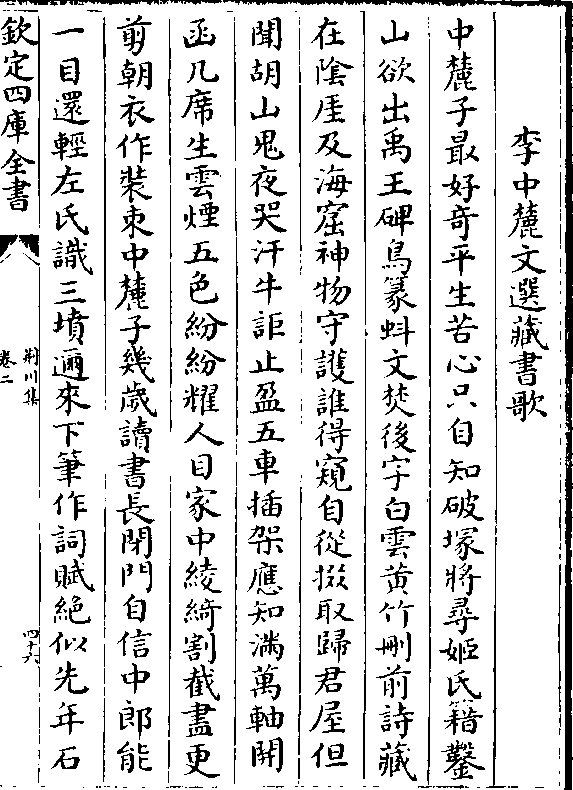 李中麓文選藏書歌
中麓子最好奇平生苦心只自知破塚將尋姬氏籍鑿
山欲出禹王碑鳥篆蚪文焚後字白雲黃竹刪前詩藏
在陰厓及海窟神物守護誰得窺自從掇取歸君屋但
聞胡山鬼夜哭汗牛詎止盈五車插架應知滿萬軸開
函几席生雲煙五色紛紛耀人目家中綾綺割截盡更
剪朝衣作裝束中麓子幾歲讀書長閉門自信中郎能
一目還輕左氏識三墳邇來下筆作詞賦絕似先年石
欽定四庫全書
荆川集
卷二
四十六